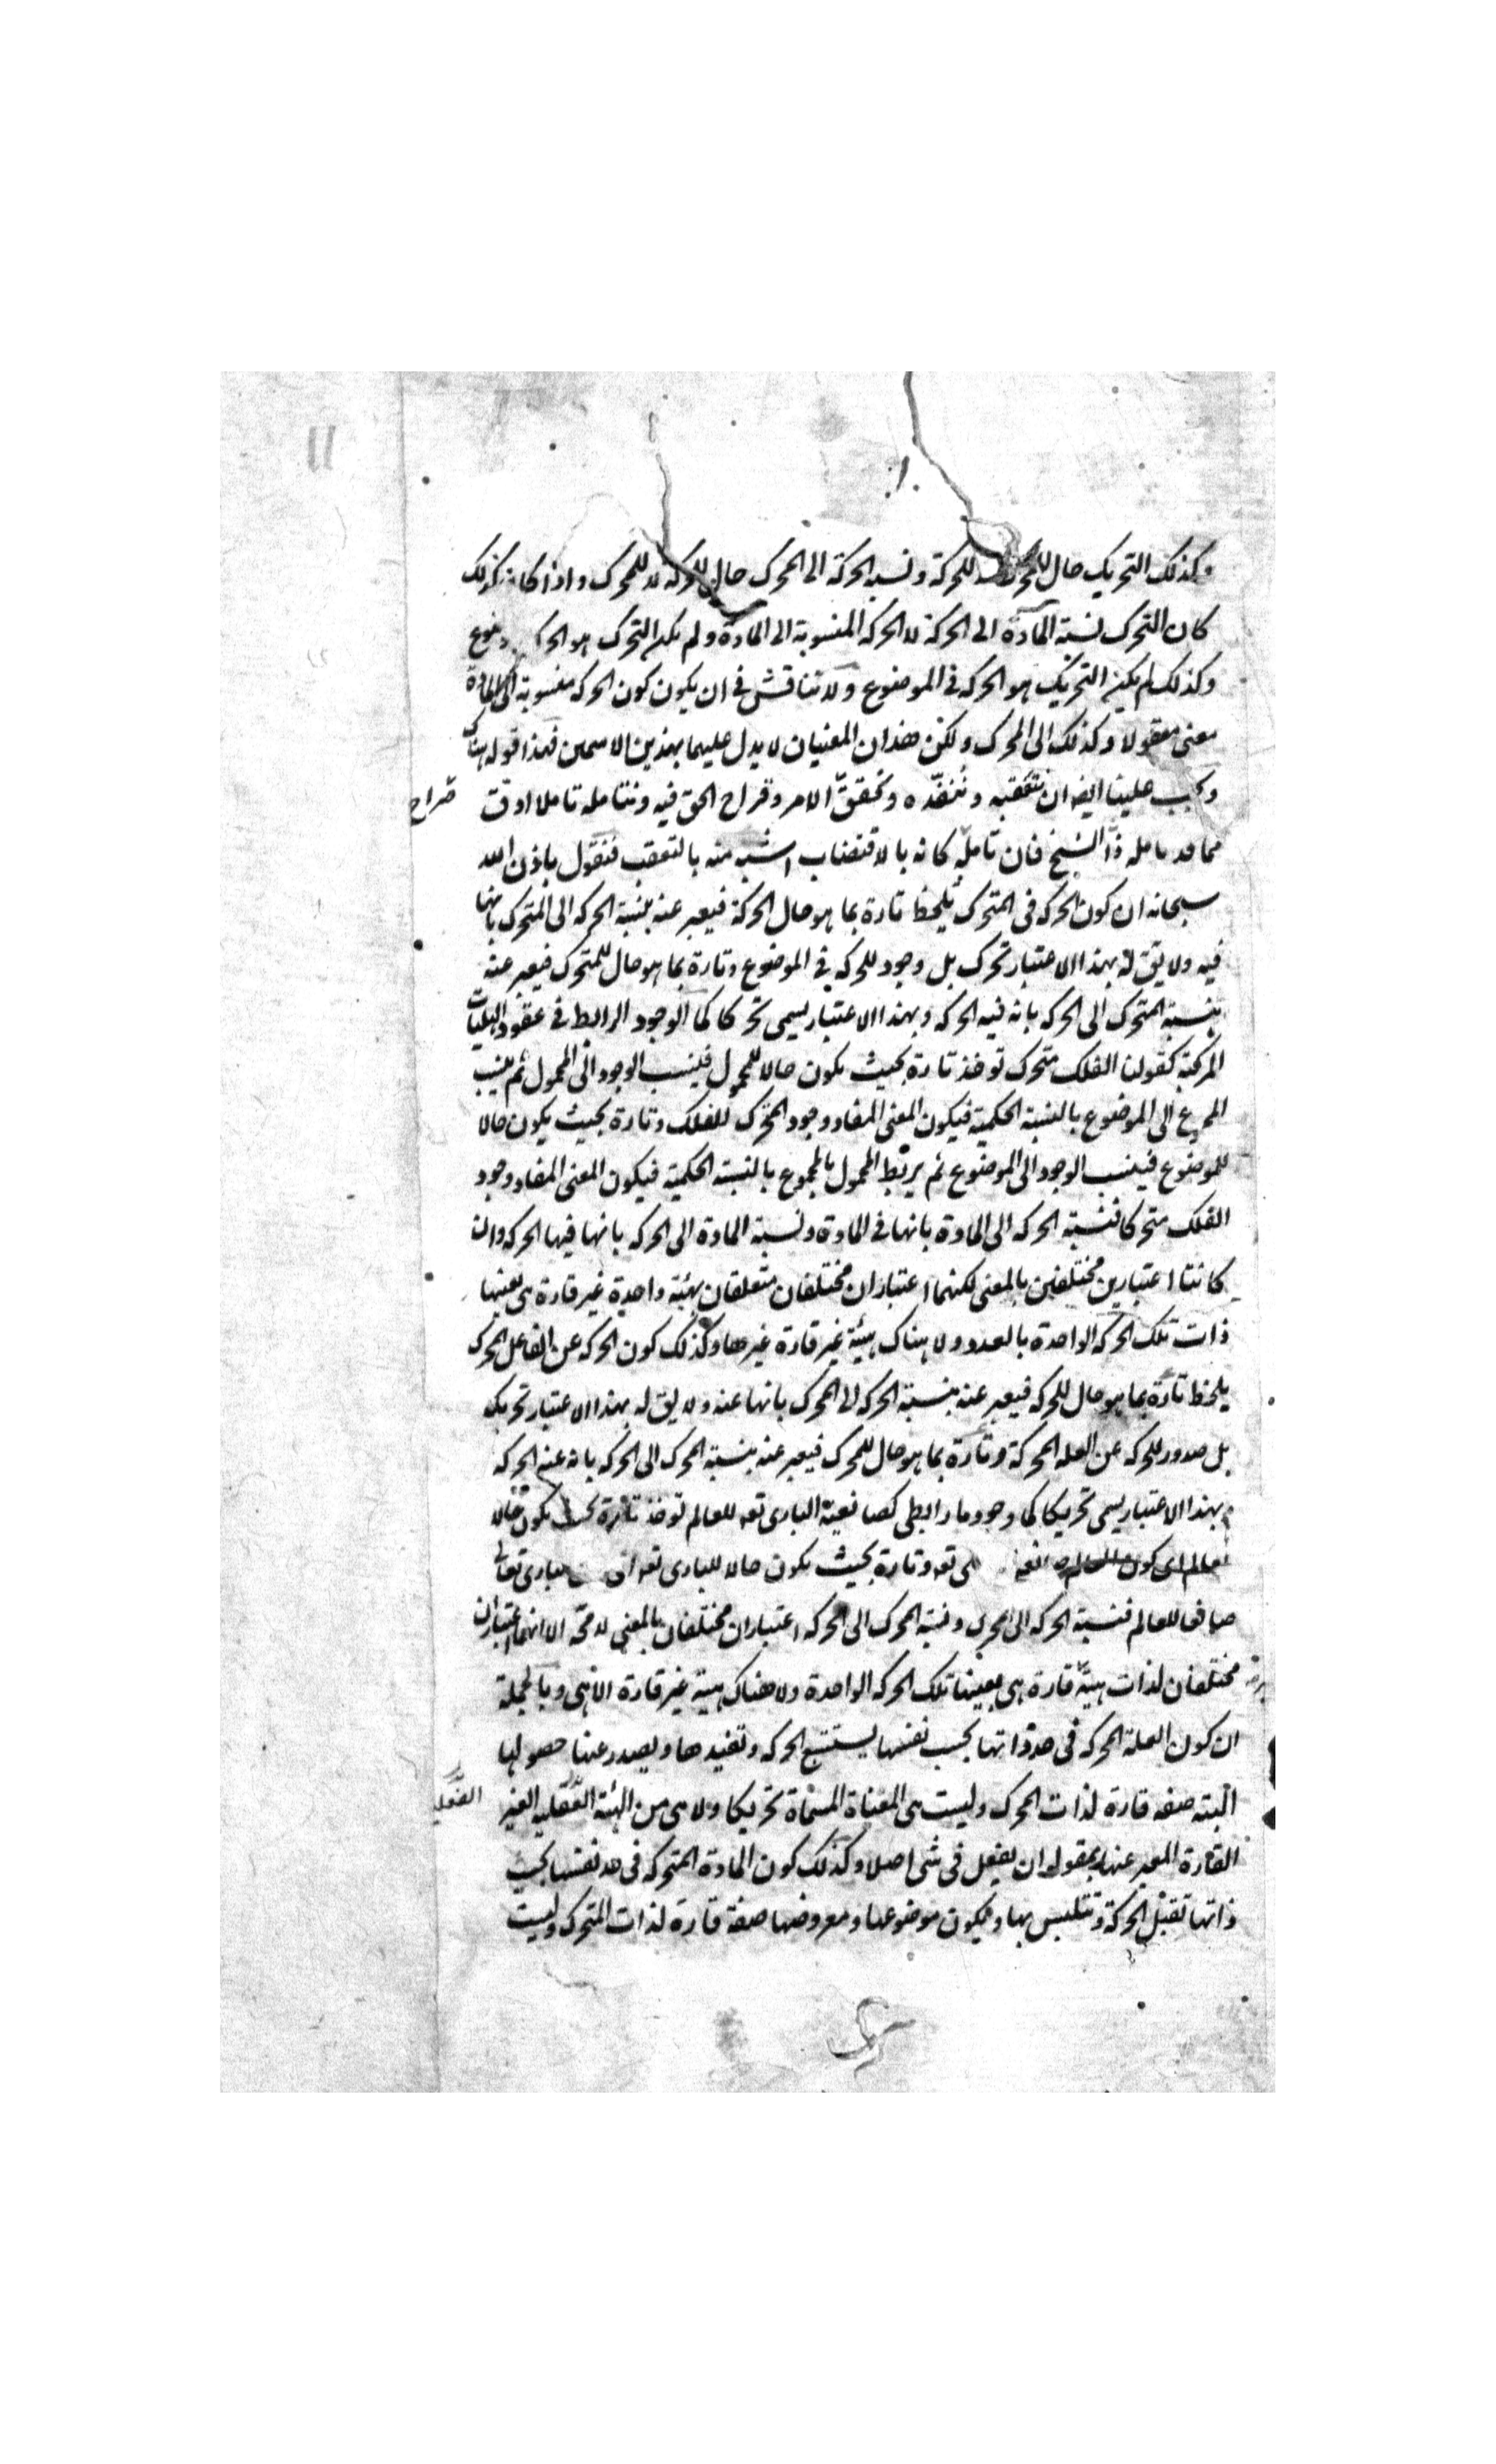 وكذلك التحريك حال للمحرك لا للحركة ونسبة الحركة الى المحرك حال للحركة لا للمحرك واذا كان كذلك
كان التحرك نسبة المادة الى الحركة لا الحركة المنسوبة الى المادة ولم يكن التحرك هو الحركة
وكذلك لم يكن التحريك هو الحركة في الموضوع ولا تناقش في ان يكون كون الحركة منسوبة الى المادة
معنى معقولا وكذلك الى المحرك ولكن هذان المعنيان لا يدل عليهما بهذين الاسمين فهذا قوله هناك
ويجب علينا ايضا ان نتعقبه وننقده ونحقق الامر وقراح الحق فيه ونتامله تاملا ادق
صراح
مما قد تامله ذا الشيخ فان تامله كانه بالاقتضاب اشبه منه بالتعقب فنقول باذن الله
سبحانه ان كون الحركه في المتحرك يلحظ تارة بما هو حال الحركة فيعبر عنه بنسبة الحركه الى المتحرك بانها
فيه ولا يق له بهذا الاعتبار تحرك بل وجود للحركه في الموضوع وتارة بما هو حال للمتحرك فيعبر عنه
بنسبة المتحرك الى الحركه بانه فيه الحركه وبهذا الاعتبار يسمى تحركا كما الوجود الرابط في عقود الهليات
المركبة كقولنا الفلك متحرك توخذ تارة بحيث يكون حالا للمحمول فينسب الوجود الى المحمول ثم ينسب
المجموع الى الموضوع بالنسبة الحكمية فيكون المعنى المفاد وجود المتحرك للفلك وتارة بحيث يكون حالا
للموضوع فينسب الوجود الى الموضوع ثم يربط المحمول بالمجموع بالنسبة الحكمية فيكون المعنى المفاد وجود
الفلك متحركا فنسبة الحركه الى المادة بانها في المادة ونسبة المادة الى الحركه بانها فيها الحركه وان
كانتا اعتبارين مختلفين بالمعنى لكنهما اعتباران مختلفان متعلقان بهيئة واحدة غير قارة هى بعينها
ذات تلك الحركه الواحدة بالعدد ولا هناك هيئة غير قارة غيرها وكذلك كون الحركه عن الفاعل المحرك
يلحظ تارة بما هو حال للحركه فيعبر عنه بنسبة الحركه الى المحرك بانها عنه ولا يق له بهذا الاعتبار تحريك
بل صدور للحركه عن العله المحركة وتارة بما هو حال للمحرك فيعبر عنه بنسبة المحرك الى الحركه بانه عنه الحركه
وبهذا الاعتبار يسمى تحريكا كما وجود ما رابطى كصانعية البارى تعه للعالم توخذ تارة بحيث يكون حالا
للعالم اى كون العالم تعه وتارة بحيث يكون حالا للبارى تعه اى البارى تعالى
صانعا للعالم فنسبة الحركه الى المحرك ونسبة المحرك الى الحركه اعتباران مختلفان بالمعنى لا محة الا انهما اعتباران
مختلفان لذات هيئة قارة هى بعينها تلك الحركه الواحدة ولا هناك هيئة غير قارة الا هى وبالجملة
ان كون العلة المحركه في حد ذاتها بحسب نفسها يستتبع الحركه وتفيدها ويصدر عنها حصولها
البته صفه قارة لذات المحرك وليست هى المعناة المسماة تحريكا ولا هى من الهيئة الفعليه الغير
القارة المعبر عنها بمقوله ان يفعل في شى اصلا وكذلك كون المادة المتحركه في حد نفسها بحيث
ذاتها تقبل الحركة وتتلبس بها ويكون موضوعها ومعروضها صفة قارة لذات المتحرك وليست